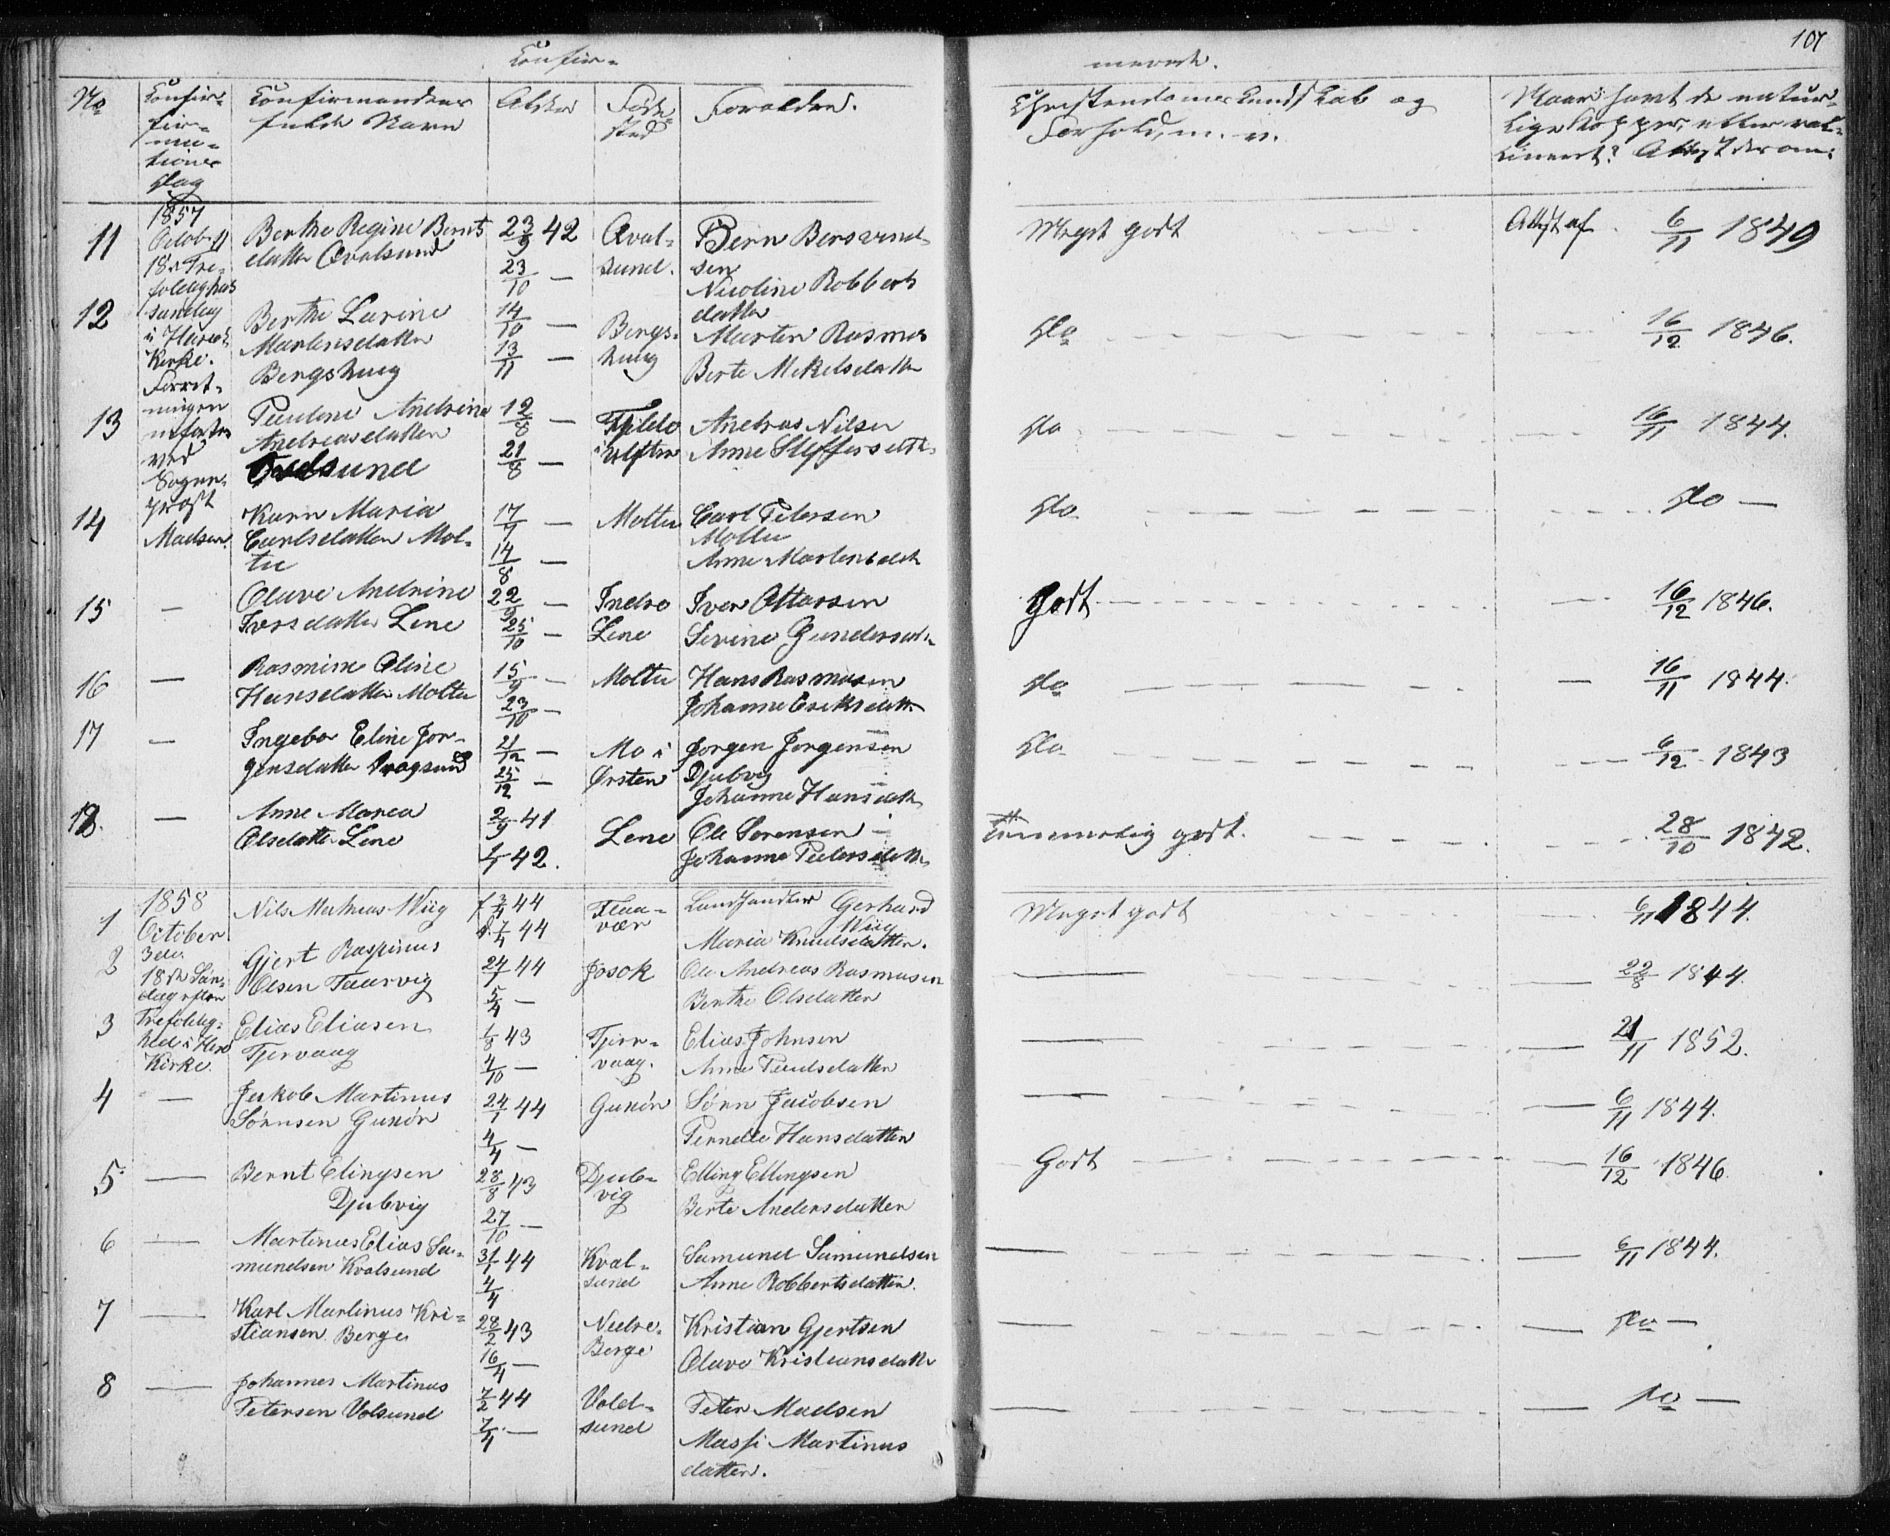 107
Confir-
merede.
No
Confir-
ma-
tions
Dag
Confirmandens
fulde Navn
Alder
Føde-
sted
Forældre.
Christendomskundskab og
Forhold, m. v.
Naar havt de natur-
lige Kopper, eller vac-
cineret? Attest derom.
1857
Octob
18. Tre-
foldigheds
søndag
i Herø
Kirke.
Forret-
ningen
udført
ved
Sogne-
prest
Madsen.
11
Berthe Regine Bernts
datter Qvalsund
23/9 42
23/10 —
Qval-
sund.
Bern Bersvend-
sen
Nicoline Robberts
datter
Meget godt
Attest af
6/11 1849
12
Berthe Larine
Martensdatter
Bergshaug
14/10 —
13/11 —
Bergs-
haug
Marten Rasmus
Berte Mikelsdatter
do
16/12 1846.
13
Pauline Andrine
Andreasdatter
sund
12/8 —
21/8 —
Andreas Nilsen
Anne Steffensdtr.
do
16/11 1844.
14
Karn Maria
Carlsdatter Mol-
tu
17/7 —
14/8 —
Moltu
Carl Petersen
Moltu
Anne Martensdtr
do
do —
15
—
Olave Andrine
Iversdatter Lene
22/9 —
25/10 —
Indre
Lene
Iver Ottarsen
Sevine Gundersdtr.
Godt.
16/12 1846.
16
—
Rasmine Oline
Hansdatter Moltu
15/9 —
23/10 —
Moltu
Hans Rasmusen
Johanne Eriksdtr
do
16/11 1844.
17
—
Ingebor Eline Jør-
gensdatter Dragsund
21/12 —
25/12 —
Mo i
Ørsten
Jørgen Jørgensen
Djubvig
Johanne Hansdtr
do
6/12 1843
18.
—
Anne Maria
Olsdatter Lene
2/9 41
1/1 42.
Lene
Ole Sørensen
Johanne Pedersdtr.
Temmelig godt.
28/10 1842.
1858
October
3die
18de Søn-
dag efter
Trefoldig-
hed i Herø
Kirke.
1
Nils Mathias Wiig
44
44
Flaa-
vær
Landhandler Gerhard
Wiig
Maria Knudsdatter.
Meget godt
6/11 1844.
2
Gjert Raspinus
Olsen Taarvig
24/1 44
5/4 —
Jøsok
Ole Andreas Rasmusen
Berthe Olsdatter
22/8 1844.
3
Elias Eliasen
Tjervaag
1/8 43
4/10 —
Tjer-
vaag.
Elias Johnsen
Anne Paulsdatter
21/11 1852.
4
—
Jakob Martinus
Sørnsen Guxør
24/1 44
4/4 —
Guxør
Sørn Jacobsen
Pernelle Hansdatter
6/11 1844.
5
—
Bernt Elingsen
Djubvig
28/8 43
27/10 —
Djub-
vig
Elling Ellingsen
Berte Andersdatter
Godt
16/12 1846.
6
—
Martinus Elias Sa-
mundsen Kvalsund
31/1 44
4/4
Kval-
sund
Samund Samundsen
Anne Robbertsdatter.
6/11 1844.
7
—
Karl Martinus Kri-
stiansen Berge
28/2 43
16/4 —
Nedre-
Berge
Kristian Gjertsen
Olave Kristiansdatter
do —
8
—
Johannes Martinus
Petersen Volsund
7/2 44
7/4 —
Vold-
sund
Peter Madsen
Massi Martinus
datter.
do —